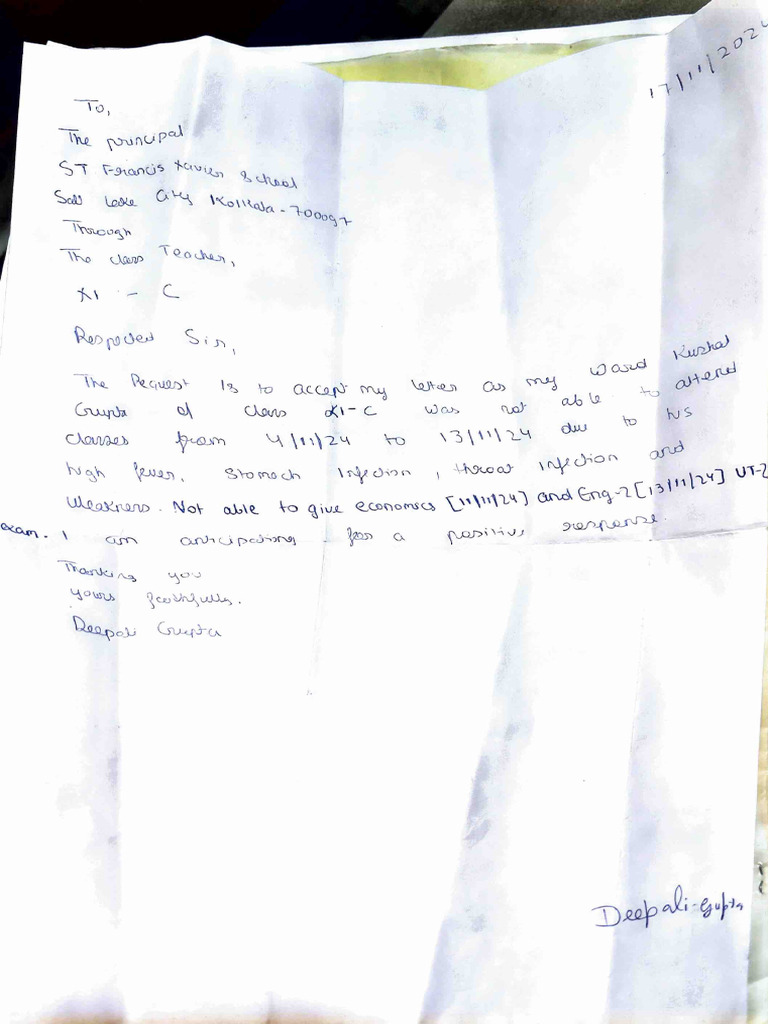 17/11/2024
To,
The principal
ST Francis Xavier School
Salt Lake City Kolkata - 700097
Through
The class Teacher,
XI - C
Respected Sir,
The Request is to accept my letter as my ward Kushal
Gupta of class XI-C was not able to attend
classes from 4/11/24 to 13/11/24 due to his
high fever, Stomach Infection, throat infection and
Weakness. Not able to give economics [11/11/24] and Eng-2 [13/11/24] UT-2
exam. I am anticipating for a positive response.
Thanking you
yours faithfully.
Deepali Gupta
Deepali-Gupta